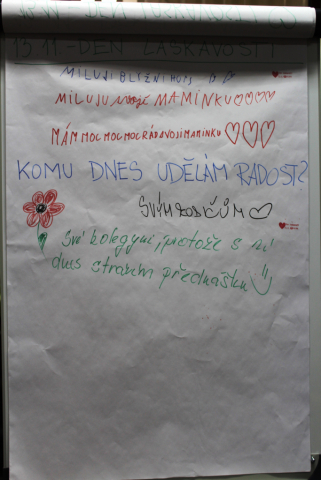 13.11 - DEN LASKAVOSTI
MILUJI BLIŽNÍHO
MILUJU MAMINKU
MÁM MOC MOC MOC RÁDA SVOJI MAMINKU
KOMU DNES UDĚLÁM RADOST?
SVÝM RODIČŮM
Své kolegyni, protože s ní
dnes strávím přednášku